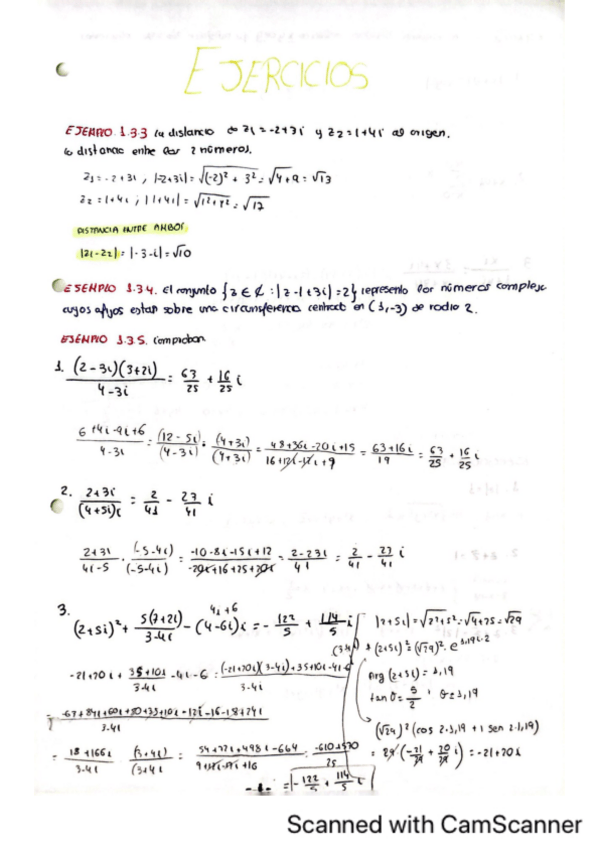 EJERCICIOS
EJEMPLO 1.3.3 la distancia de z1 = -2+3i y z2 = 1+4i al origen.
la distancia entre los 2 números.
z1 = -2+3i, |-2+3i| = √(-2)² + 3² = √4+9 = √13
z2 = 1+4i, |1+4i| = √1²+4² = √17
DISTANCIA ENTRE AMBOS
|z1-z2| = |-3-i| = √10
EJEMPLO 1.3.4. El conjunto {z ∈ ℂ : |z-1+3i| = 2} representa los números complejos
cuyos afijos están sobre una circunferencia centrada en (1,-3) de radio 2.
EJEMPLO 1.3.5. Comproban
1. (2-3i)(3+2i) / 4-3i = 63/25 + 16/25 i
6+4i-9i+6 / 4-3i = (12-5i)/(4-3i) · (4+3i)/(4+3i) = 48+36i-20i+15 / 16+12i-12i+9 = 63+16i / 19 = 63/25 + 16/25 i
2. 2+3i / (4+5i)i = 2/41 - 23/41 i
2+3i / 4i-5 · (-5-4i)/(-5-4i) = -10-8i-15i+12 / -20i+16+25+20i = 2-23i / 41 = 2/41 - 23/41 i
3. (2+5i)² + 5(7+2i) / 3-4i - (4-6i)i = - 122/5 + 114/5 i
4i+6
|2+5i| = √2²+5² = √4+25 = √29
(2+5i)² = (√29)² · e^1,19i·2
Arg (2+5i) = 1,19
tan θ = 5/2, θ = 1,19
(√29)² (cos 2·1,19 + i sen 2·1,19)
= 29 (-21/29 + 20/29 i) = -21+20i
-21+20i + 35+10i / 3-4i - 4i - 6 = (-21+20i)(3-4i)+35+10i
= 18+166i / 3-4i · (3+4i)/(3+4i)
= - 122/5 + 114/5 i
Scanned with CamScanner